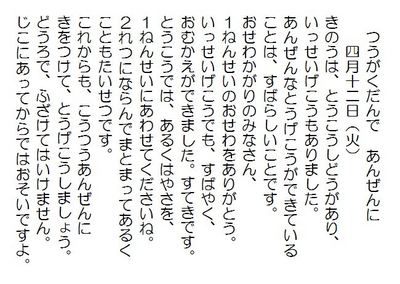 つうがくだんで　あんぜんに
四月十二日（火）
きのうは、とうこうしどうがあり、
いっせいげこうもありました。
あんぜんなとうげこうができている
ことは、すばらしいことです。
おせわかがりのみなさん、
１ねんせいのおせわをありがとう。
いっせいげこうでも、すばやく、
おむかえができました。すてきです。
とうこうでは、あるくはやさを、
１ねんせいにあわせてくださいね。
２れつにならんでまとまってあるく
こともたいせつです。
これからも、こうつうあんぜんに
きをつけて、とうげこうしましょう。
どうろで、ふざけてはいけません。
じこにあってからではおそいですよ。